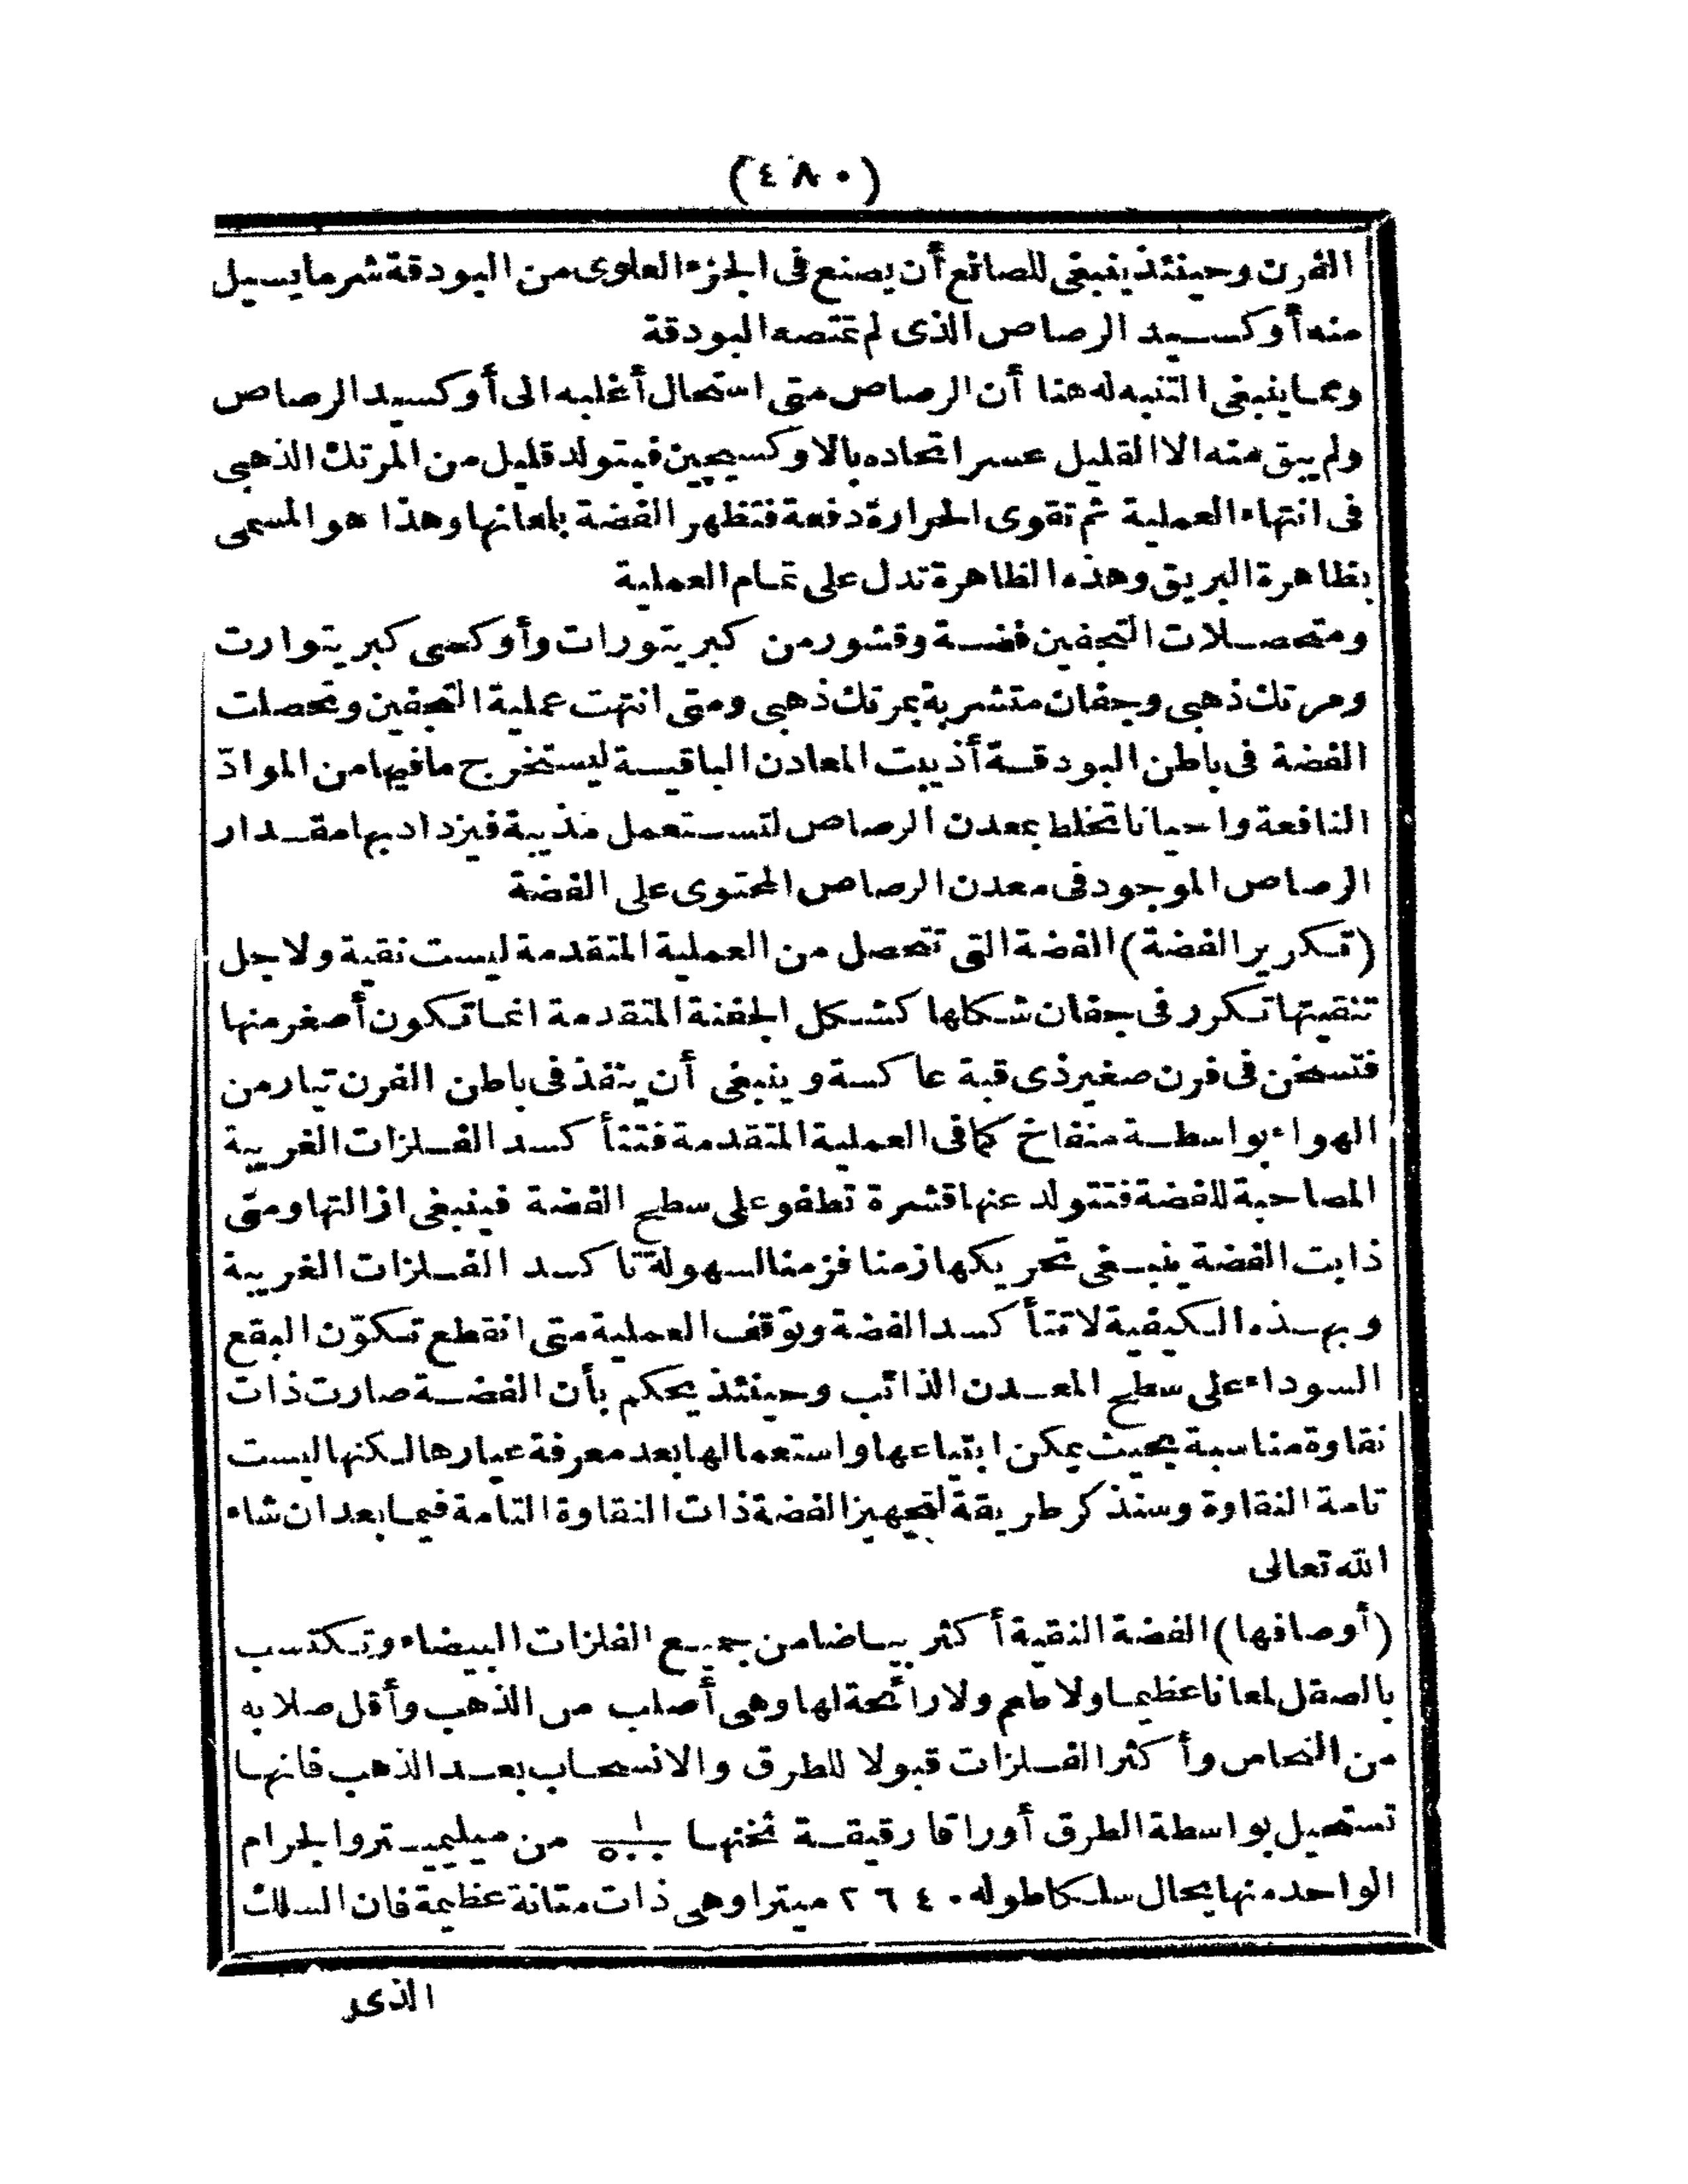 (٤٨٠)
الفرن وحينئذ ينبغى للصانع أن يصنع فى الجزء العلوى من البودقة شرما يسيل
منه أوكسيد الرصاص الذى لم تمتصه البودقة
ومما ينبغى التنبه له هنا أن الرصاص متى استحال أغلبه الى أوكسيد الرصاص
ولم يبق منه الا القليل عسر اتحاده بالاوكسيجين فيتولد قليل من المرتك الذهبى
فى انتهاء العملية ثم تقوى الحرارة دفعة فتظهر الفضة بلمعانها وهذا هو المسمى
بظاهرة البريق وهذه الظاهرة تدل على تمام العملية
ومتحصلات التجفين فضة وقشور من كبريتورات وأوكسى كبريتوارت
ومرتك ذهبى وجفان متشربة بمرتك ذهبى ومتى انتهت عملية التجفين وتحصلت
الفضة فى باطن البودقة أذيبت المعادن الباقية ليستخرج ما فيها من الموادّ
النافعة واحيانا تخلط بمعدن الرصاص لتستعمل مذيبة فيزداد بها مقدار
الرصاص الموجود فى معدن الرصاص المحتوى على الفضة
(تكرير الفضة) الفضة التى تتحصل من العملية المتقدمة ليست نقية ولاجل
تنقيتها تكرر فى جفان شكلها كشكل الجفنة المتقدمة انما تكون أصغر منها
فتسخن فى فرن صغير ذى قبة عاكسة وينبغى أن ينفذ فى باطن الفرن تيار من
الهواء بواسطة منفاخ كما فى العملية المتقدمة فتتأكسد الفلزات الغريبة
المصاحبة للفضة فتتولد عنها قشرة تطفو على سطح الفضة فينبغى ازالتها ومتى
ذابت الفضة ينبغى تحريكها زمنا فزمنا لسهولة تاكسد الفلزات الغريبة
وبهذه الكيفية لا تتأكسد الفضة وتوقف العملية متى انقطع تكوّن البقع
السوداء على سطح المعدن الذائب وحينئذ يحكم بأن الفضة صارت ذات
نقاوة مناسبة بحيث يمكن ابتياعها واستعمالها بعد معرفة عيارها لكنها ليست
تامة النقاوة وسنذكر طريقة لتجهيز الفضة ذات النقاوة التامة فيما بعد ان شاء
الله تعالى
(أوصافها) الفضة النقية أكثر بياضا من جميع الفلزات البيضاء وتكتسب
بالصقل لمعانا عظيما ولا طعم ولا رائحة لها وهى أصلب من الذهب وأقل صلابه
من النحاس وأكثر الفلزات قبولا للطرق والانسحاب بعد الذهب فانها
تستحيل بواسطة الطرق أوراقا رقيقة ثخنها من ميليميتر والجرام
الواحد منها يحال سلكا طوله ٢٦٤٠ ميترا وهى ذات متانة عظيمة فان السلك
الذى